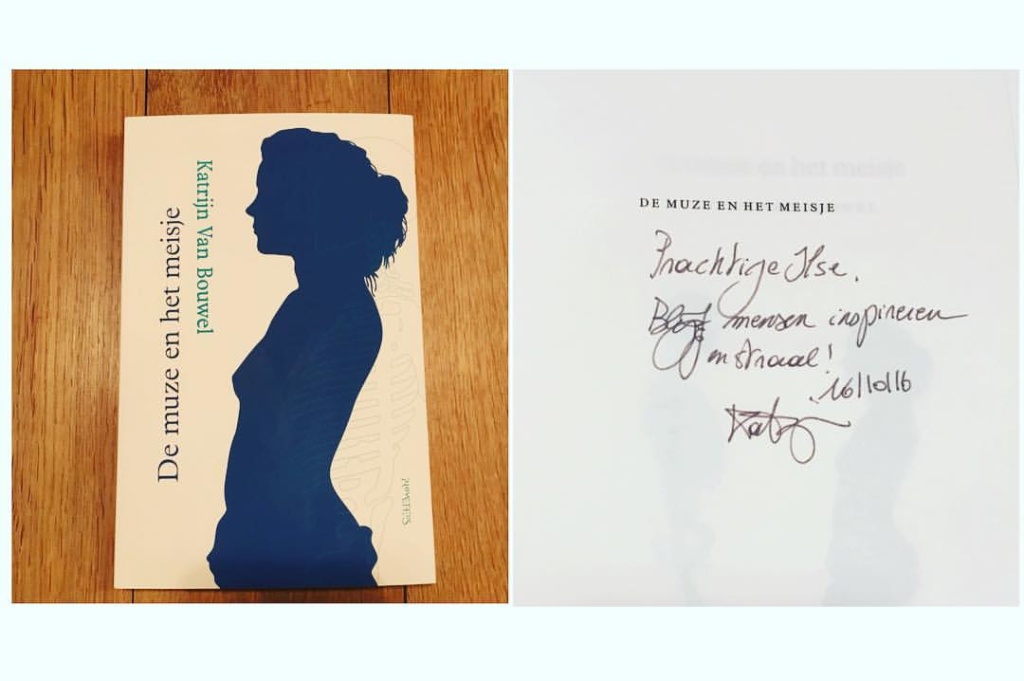 De muze en het meisje
Katrijn Van Bouwel
DE MUZE EN HET MEISJE
Prachtige Ilse.
Blijf mensen inspireren
en straal!
16/10/16